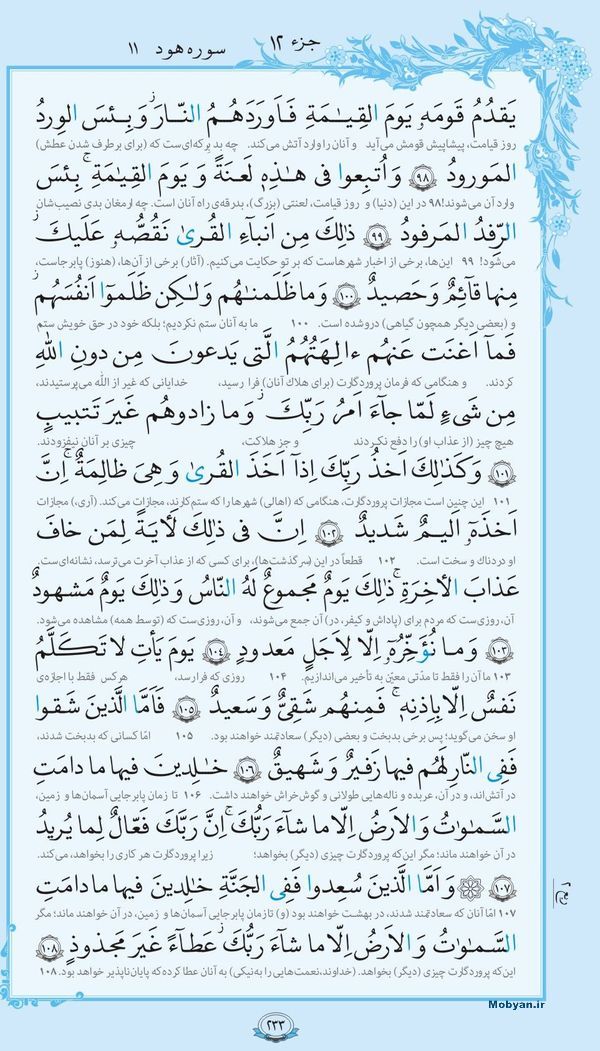 جزء ۱۲
سوره هود ۱۱
يَقدُمُ قَومَهُۥ يَومَ القِيـٰمَةِ فَاَورَدَهُمُ النّارَ ۖ وَ بِئسَ الوِردُ
روز قیامت، پیشاپیش قومش می‌آید و آنان را وارد آتش می‌کند. چه بد برکه‌ای‌ست که (برای برطرف شدن عطش)
المَورودُ ﴿۹۸﴾ وَ اُتبِعوا فى هـٰذِهِۦ لَعنَةً وَ يَومَ القِيـٰمَةِ ۚ بِئسَ
وارد آن می‌شوند! ۹۸ در این (دنیا) و روز قیامت، لعنتی (بزرگ)، بدرقه‌ی راه آنان است. چه ارمغان بدی نصیب‌شان
الرِّفدُ المَرفودُ ﴿۹۹﴾ ذٰلِكَ مِن اَنباۤءِ القُرىٰ نَقُصُّهُۥ عَلَيكَ ۖ
می‌شود! ۹۹ این‌ها، برخی از اخبار شهرهاست که بر تو حکایت می‌کنیم. (آثار) برخی از آن‌ها، (هنوز) پابرجاست،
مِنها قاۤئِمٌ وَ حَصيدٌ ﴿۱۰۰﴾ وَ ما ظَلَمنـٰهُم وَلـٰكِن ظَلَموۤا اَنفُسَهُم ۖ
و (بعضی دیگر همچون گیاهی) دروشده است. ۱۰۰ ما به آنان ستم نکردیم؛ بلکه خود در حق خویش ستم
فَماۤ اَغنَت عَنهُم ءالِهَتُهُمُ الَّتى يَدعونَ مِن دونِ اللهِ
کردند. و هنگامی که فرمان پروردگارت (برای هلاک آنان) فرا رسید، خدایانی که غیر از الله می‌پرستیدند،
مِن شَىءٍ لَمّا جاۤءَ اَمرُ رَبِّكَ ۖ وَ ما زادوهُم غَيرَ تَتبيبٍ
هیچ چیز (از عذاب او) را دفع نکردند و جز هلاکت، چیزی بر آنان نیفزودند.
﴿۱۰۱﴾ وَ كَذٰلِكَ اَخذُ رَبِّكَ اِذاۤ اَخَذَ القُرىٰ وَ هِىَ ظالِمَةٌ ۚ اِنَّ
۱۰۱ این چنین است مجازات پروردگارت، هنگامی که (اهالی) شهرها را که ستم‌کارند، مجازات می‌کند. (آری،) مجازات
اَخذَهُۥۤ اَليمٌ شَديدٌ ﴿۱۰۲﴾ اِنَّ فى ذٰلِكَ لَأيَةً لِمَن خافَ
او دردناک و سخت است. ۱۰۲ قطعاً در این (سرگذشت‌ها)، برای کسی که از عذاب آخرت می‌ترسد، نشانه‌ای‌ست.
عَذابَ الأخِرَةِ ۚ ذٰلِكَ يَومٌ مَجموعٌ لَهُ النّاسُ وَ ذٰلِكَ يَومٌ مَشهودٌ
آن، روزی‌ست که مردم برای (پاداش و کیفر، در) آن جمع می‌شوند، و آن، روزی‌ست که (توسط همه) مشاهده می‌شود.
﴿۱۰۳﴾ وَ ما نُؤَخِّرُهُۥۤ اِلّا لِاَجَلٍ مَعدودٍ ﴿۱۰۴﴾ يَومَ يَأتِ لا تَكَلَّمُ
۱۰۳ ما آن را فقط تا مدّتی معیّن به تأخیر می‌اندازیم. ۱۰۴ روزی که فرا رسد، هر کس فقط با اجازه‌ی
نَفسٌ اِلّا بِاِذنِهِۦ ۚ فَمِنهُم شَقِىٌّ وَ سَعيدٌ ﴿۱۰۵﴾ فَاَمَّا الَّذينَ شَقوا
او سخن می‌گوید؛ پس برخی بدبخت و بعضی (دیگر) سعادتمند خواهند بود. ۱۰۵ امّا کسانی که بدبخت شدند،
فَفِى النّارِ لَهُم فيها زَفيرٌ وَ شَهيقٌ ﴿۱۰۶﴾ خـٰلِدينَ فيها ما دامَتِ
در آتش‌اند، و در آن، عربده و ناله‌هایی طولانی و گوش‌خراش خواهند داشت. ۱۰۶ تا زمان پابرجایی آسمان‌ها و زمین،
السَّمـٰوٰتُ وَ الاَرضُ اِلّا ما شاۤءَ رَبُّكَ ۚ اِنَّ رَبَّكَ فَعّالٌ لِما يُريدُ
در آن خواهند ماند؛ مگر این‌که پروردگارت چیزی (دیگر) بخواهد؛ زیرا پروردگارت هر کاری را بخواهد، می‌کند.
﴿۱۰۷﴾ وَ اَمَّا الَّذينَ سُعِدوا فَفِى الجَنَّةِ خـٰلِدينَ فيها ما دامَتِ
۱۰۷ امّا آنان که سعادتمند شدند، در بهشت خواهند بود (و) تا زمان پابرجایی آسمان‌ها و زمین، در آن خواهند ماند؛ مگر
السَّمـٰوٰتُ وَ الاَرضُ اِلّا ما شاۤءَ رَبُّكَ ۖ عَطاۤءً غَيرَ مَجذوذٍ ﴿۱۰۸﴾
این‌که پروردگارت چیزی (دیگر) بخواهد. (خداوند، نعمت‌هایی را به‌نیکی) به آنان عطا کرده که پایان‌ناپذیر خواهد بود. ۱۰۸
۲۳۳
Mobyan.ir